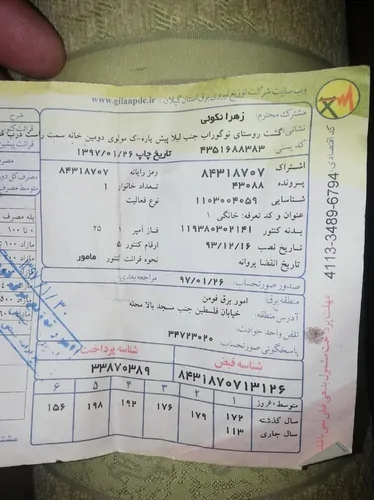 وب سایت شرکت توزیع نیروی برق استان گیلان: www.gilaapdc.ir
مشترک محترم: زهرا نکوئی
نشانی: گشت روستای نوگوراب جنب لیلا پیش یاره-ک مولوی دومین خانه سمت ر
کد پستی: ۴۳۵۱۶۸۸۳۸۳ تاریخ چاپ ۱۳۹۷/۰۱/۲۶
اشتراک ۸۴۳۱۸۷۰۷ رمز رایانه ۸۴۳۱۸۷۰۷
پرونده ۴۳۰۸۸ تعداد خانوار ۱
شناسایی ۱۱۰۳۰۰۴۰۵۹ نوع فعالیت
عنوان و کد تعرفه: خانگی ۱
بدنه کنتور ۱۱۹۳۸۰۳۰۲۱۴۱ فاز آمپر ۱ ۲۵
تاریخ نصب ۹۳/۱۲/۱۶ ارقام کنتور ۵
تاریخ انقضا پروانه نحوه قرائت کنتور مامور
صدور صورتحساب: ۹۷/۰۱/۲۶ مراجعه بعدی:
منطقه برق: امور برق فومن
آدرس منطقه: خیابان فلسطین جنب مسجد بالا محله
تلفن واحد حوادث:
پاسخگوئی صورتحساب: ۳۴۷۲۳۰۲۰
شناسه قبض شناسه پرداخت
۸۴۳۱۸۷۰۷۱۳۱۲۶ ۳۳۸۷۰۳۸۹
متوسط ۶۰ روز ۱ ۲ ۳ ۴ ۵ ۶
سال گذشته ۱۷۲ ۱۷۹ ۱۷۶ ۱۹۲ ۱۹۸ ۱۵۶
سال جاری ۱۱۳
کد اقتصادی: 4113-3489-6794
شرح
قرائت پیشین
متوسط مصرف
پله مصرف
۰ تا ۱۰۰
مازاد ۱۰۰